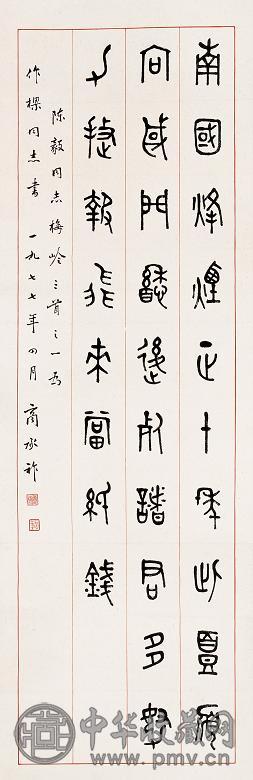 南國烽煙正十年此頭須
向或門縣後死諸君多努
力捷報飛來當紙錢
陈毅同志梅岭三首之一为
作樑同志书 一九七七年四月 商承祚
中华收藏网
www.pmv.cn